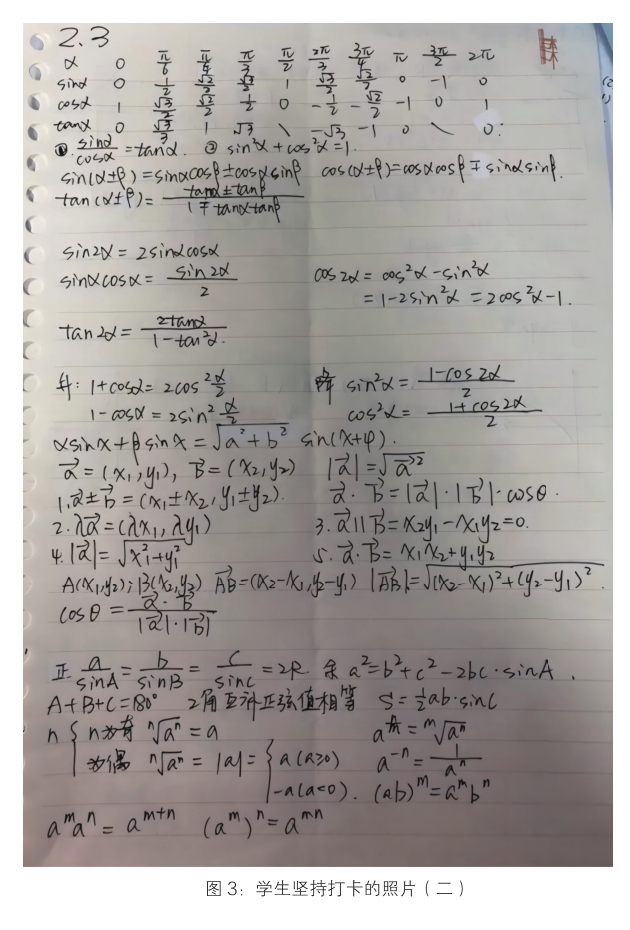 2.3
α 0 π/6 π/4 π/3 π/2 2π/3 3π/4 π 3π/2 2π
sinα 0 1/2 √2/2 √3/2 1 √3/2 √2/2 0 -1 0
cosα 1 √3/2 √2/2 1/2 0 -1/2 -√2/2 -1 0 1
tanα 0 √3/3 1 √3 \ -√3 -1 0 \ 0.
① sinα/cosα = tanα. ② sin²α + cos²α = 1.
sin(α±β) = sinαcosβ ± cosαsinβ cos(α±β) = cosαcosβ ∓ sinαsinβ.
tan(α±β) = (tanα ± tanβ)/(1 ∓ tanαtanβ)
sin2α = 2sinαcosα
sinαcosα = sin2α/2 cos2α = cos²α - sin²α
= 1 - 2sin²α = 2cos²α - 1.
tan2α = 2tanα/(1 - tan²α).
升: 1 + cosα = 2cos²α/2 降 sin²α = (1 - cos2α)/2
1 - cosα = 2sin²α/2 cos²α = (1 + cos2α)/2
αsinx + βsinx = √(a² + b²) sin(x+φ).
a⃗ = (x₁, y₁), b⃗ = (x₂, y₂) |a⃗| = √(a⃗²)
1. a⃗ ± b⃗ = (x₁ ± x₂, y₁ ± y₂). a⃗ · b⃗ = |a⃗| · |b⃗| · cosθ.
2. λa⃗ = (λx₁, λy₁) 3. a⃗ ∥ b⃗ = x₂y₁ - x₁y₂ = 0.
4. |a⃗| = √(x₁² + y₁²) 5. a⃗ · b⃗ = x₁x₂ + y₁y₂
A(x₁, y₂); B(x₂, y₃) AB⃗ = (x₂ - x₁, y₂ - y₁) |AB⃗| = √((x₂ - x₁)² + (y₂ - y₁)²).
cosθ = a⃗ · b⃗/(|a⃗| · |b⃗|)
正 a/sinA = b/sinB = c/sinC = 2R. 余 a² = b² + c² - 2bc · sinA.
A + B + C = 180° 2角互补正弦值相等 S = ½ab · sinC
n { n为奇 ⁿ√aⁿ = a
为偶 ⁿ√aⁿ = |a| = { a (a≥0) a⁻ⁿ = 1/aⁿ
-a (a<0). (ab)ᵐ = aᵐbⁿ
aᵐaⁿ = aᵐ⁺ⁿ (aᵐ)ⁿ = aᵐⁿ
图 3：学生坚持打卡的照片（二）